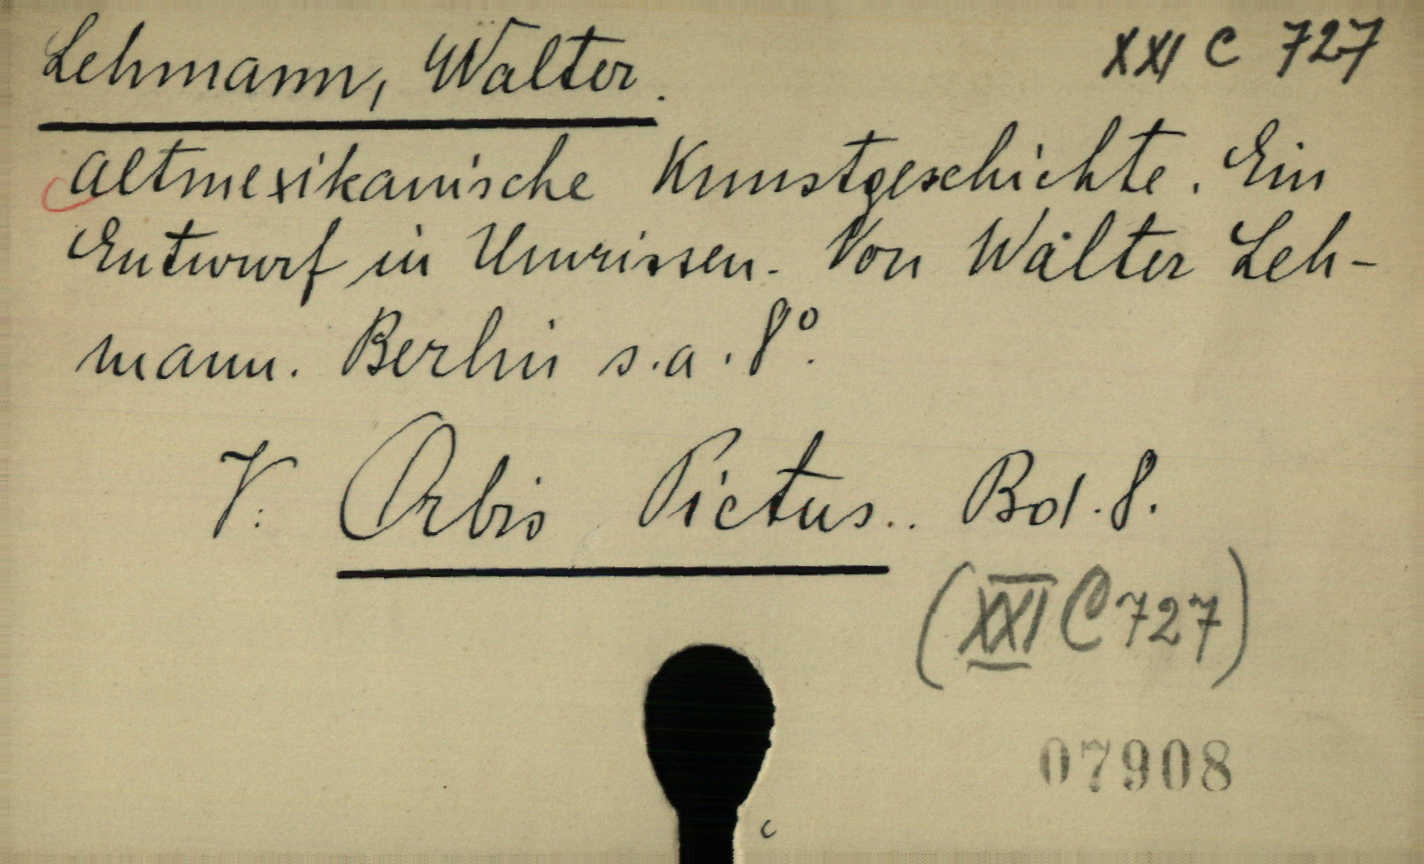 Lehmann, Walter.
XXI C 727
Altmexikanische Kunstgeschichte. Ein
Entwurf in Umrissen. Von Walter Leh-
mann. Berlin s.a. 8°.
V. Orbis Pictus.. Bd. 8.
(XXI C 727)
07908